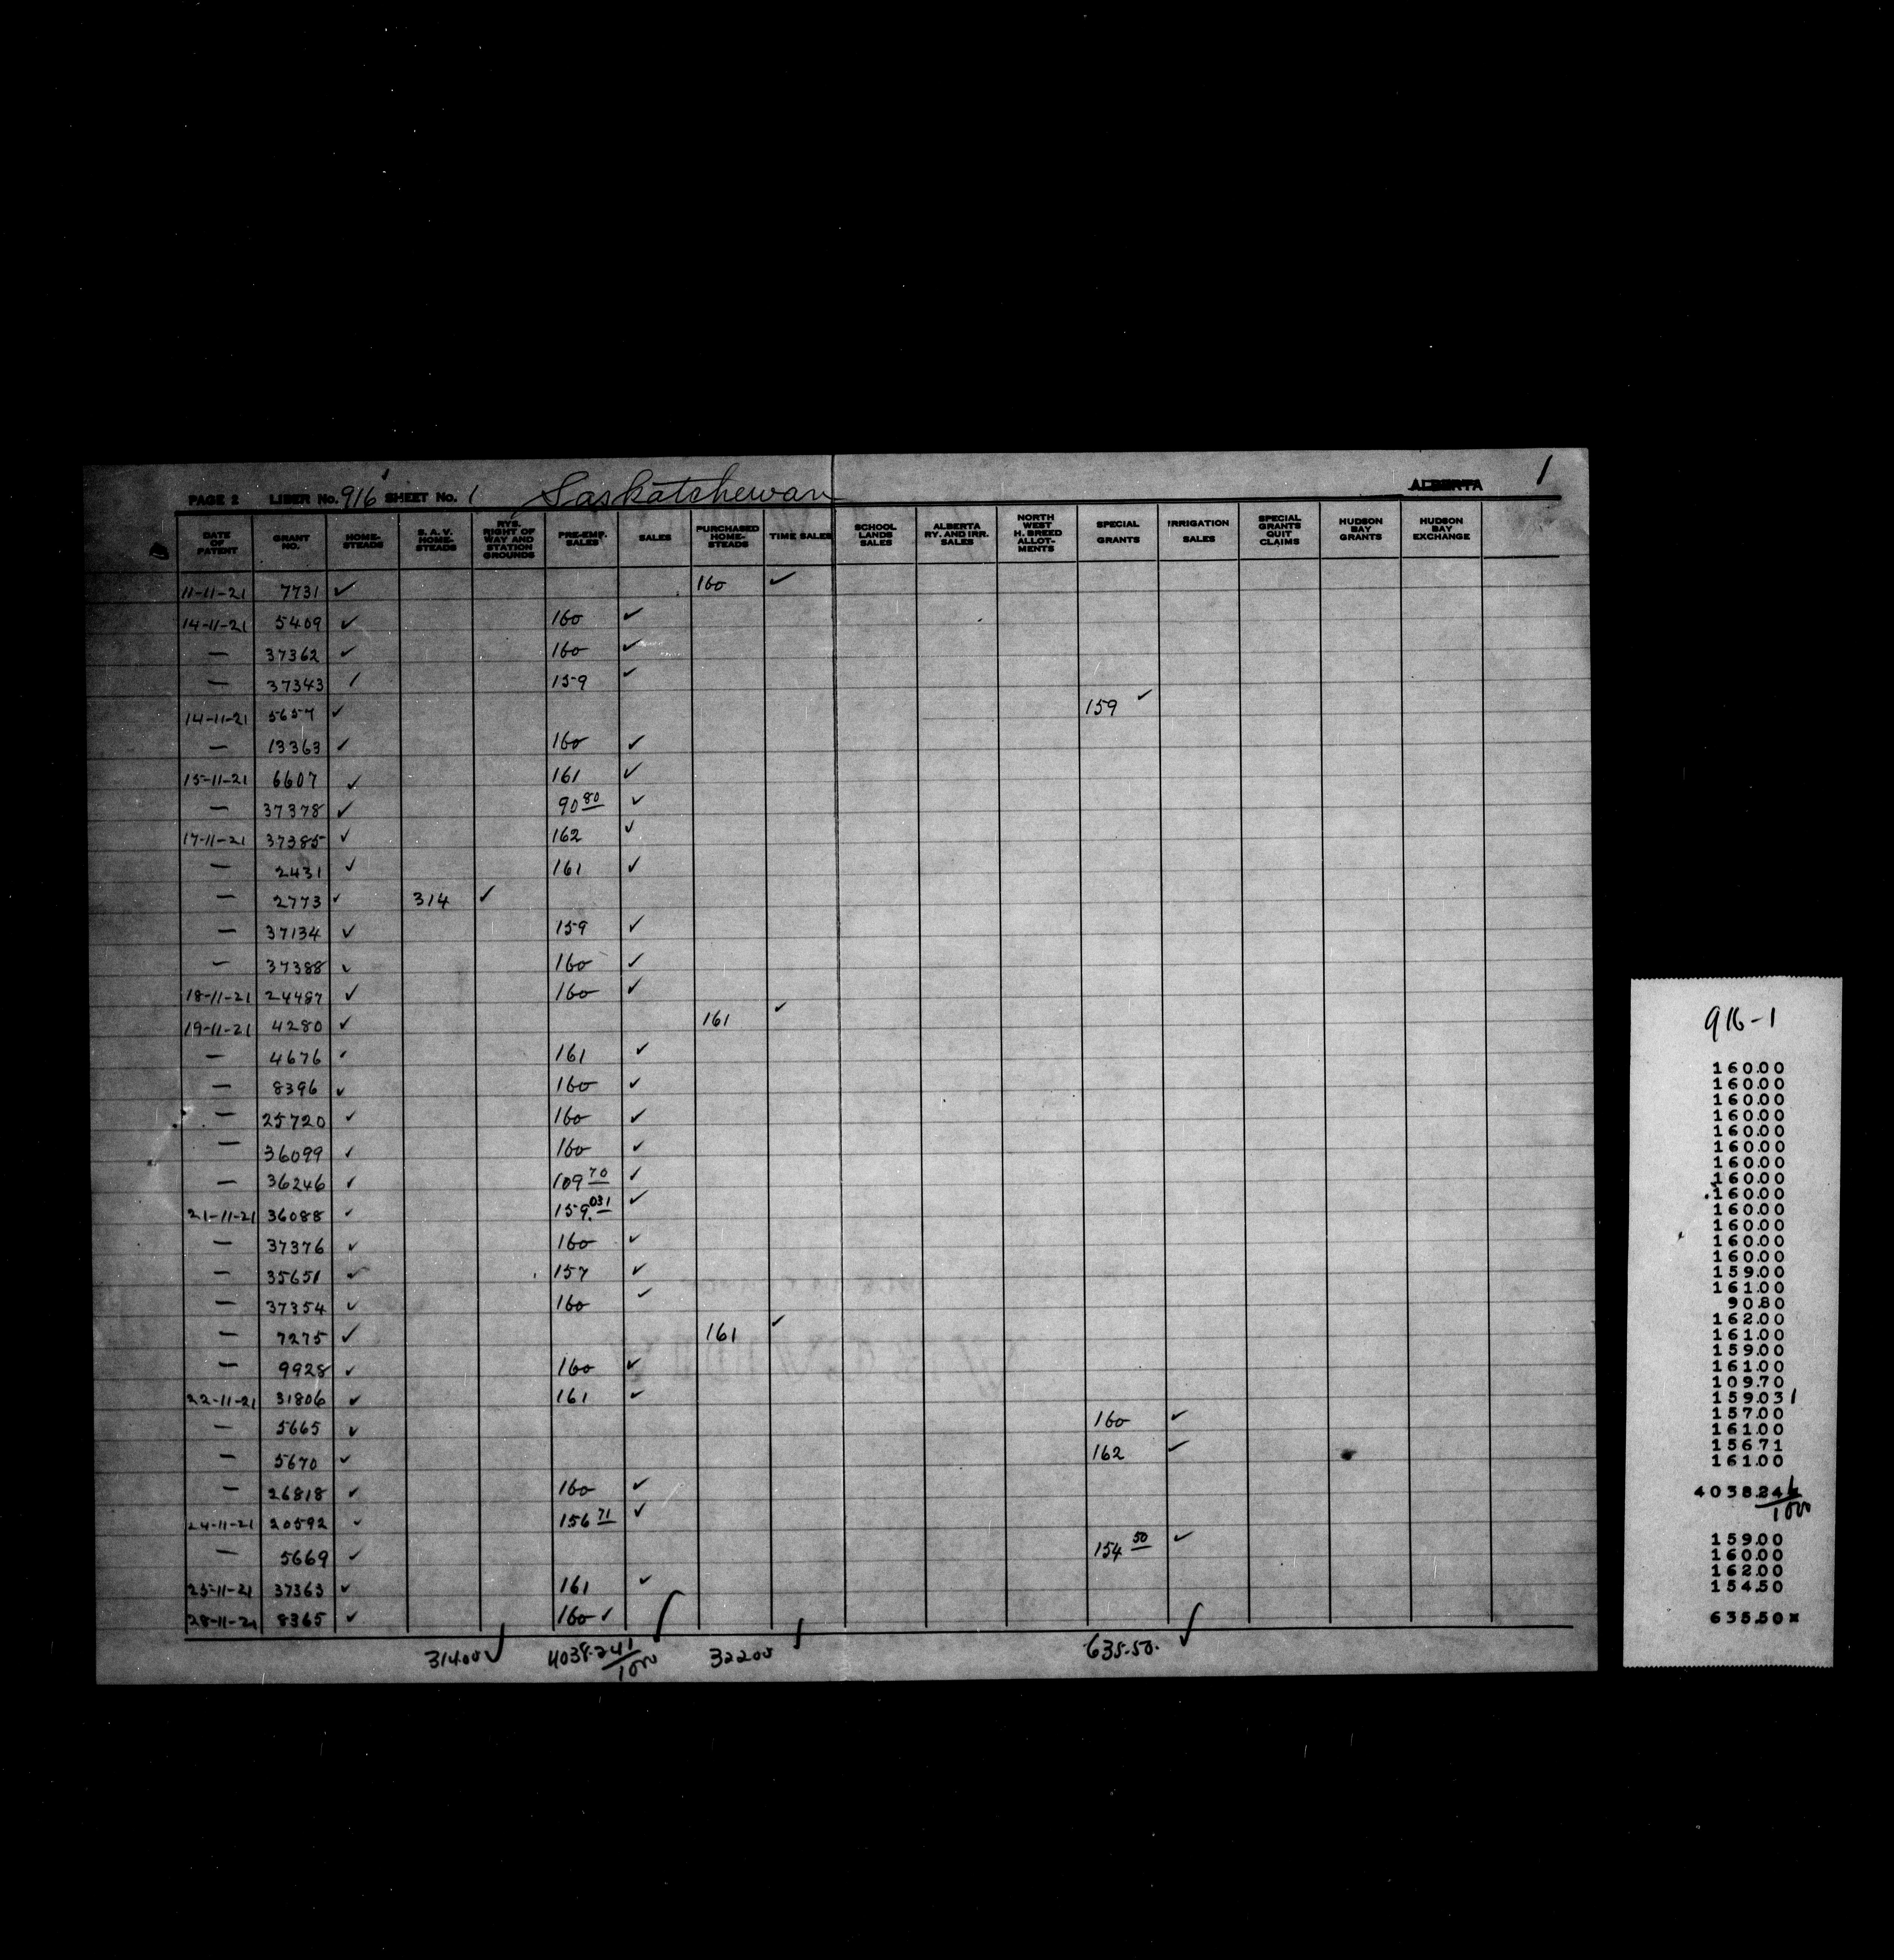 1
PAGE 2 LIBER No. 916 SHEET No. 1 Saskatchewan ALBERTA
DATE OF PATENT GRANT NO. HOME-STEADS S. A. V. HOME-STEADS RYS. RIGHT OF WAY AND STATION GROUNDS PRE-EMP. SALES SALES PURCHASED HOME-STEADS TIME SALES SCHOOL LANDS SALES ALBERTA RY. AND IRR. SALES NORTH WEST H. BREED ALLOT-MENTS SPECIAL GRANTS IRRIGATION SALES SPECIAL GRANTS QUIT CLAIMS HUDSON BAY GRANTS HUDSON BAY EXCHANGE
11-11-21 7731 ✓ 160 ✓
14-11-21 5409 ✓ 160 ✓
— 37362 ✓ 160 ✓
— 37343 ✓ 159 ✓
14-11-21 5657 ✓ 159 ✓
— 13363 ✓ 160 ✓
15-11-21 6607 ✓ 161 ✓
— 37378 ✓ 90 80 ✓
17-11-21 37385 ✓ 162 ✓
— 2431 ✓ 161 ✓
— 2773 ✓ 314 ✓
— 37134 ✓ 159 ✓
— 37388 ✓ 160 ✓
18-11-21 24487 ✓ 160 ✓
19-11-21 4280 ✓ 161 ✓
— 4676 ✓ 161 ✓
— 8396 ✓ 160 ✓
— 25720 ✓ 160 ✓
— 36099 ✓ 160 ✓
— 36246 ✓ 109 70 ✓
21-11-21 36088 ✓ 159.031 ✓
— 37376 ✓ 160 ✓
— 35651 ✓ 157 ✓
— 37354 ✓ 160 ✓
— 7275 ✓ 161 ✓
— 9928 ✓ 160 ✓
22-11-21 31806 ✓ 161 ✓
— 5665 ✓ 160 ✓
— 5670 ✓ 162 ✓
— 26818 ✓ 160 ✓
24-11-21 20592 ✓ 156 71 ✓
— 5669 ✓ 154 50 ✓
25-11-21 37363 ✓ 161 ✓
28-11-21 8365 ✓ 160 ✓
314.00 ✓ 4038.241/1000 322.00 635.50. ✓
916-1
160.00
160.00
160.00
160.00
160.00
160.00
160.00
160.00
160.00
160.00
160.00
160.00
160.00
159.00
161.00
90.80
162.00
161.00
159.00
161.00
109.70
159.031
157.00
161.00
156.71
161.00
4038.241/1000
159.00
160.00
162.00
154.50
635.50*